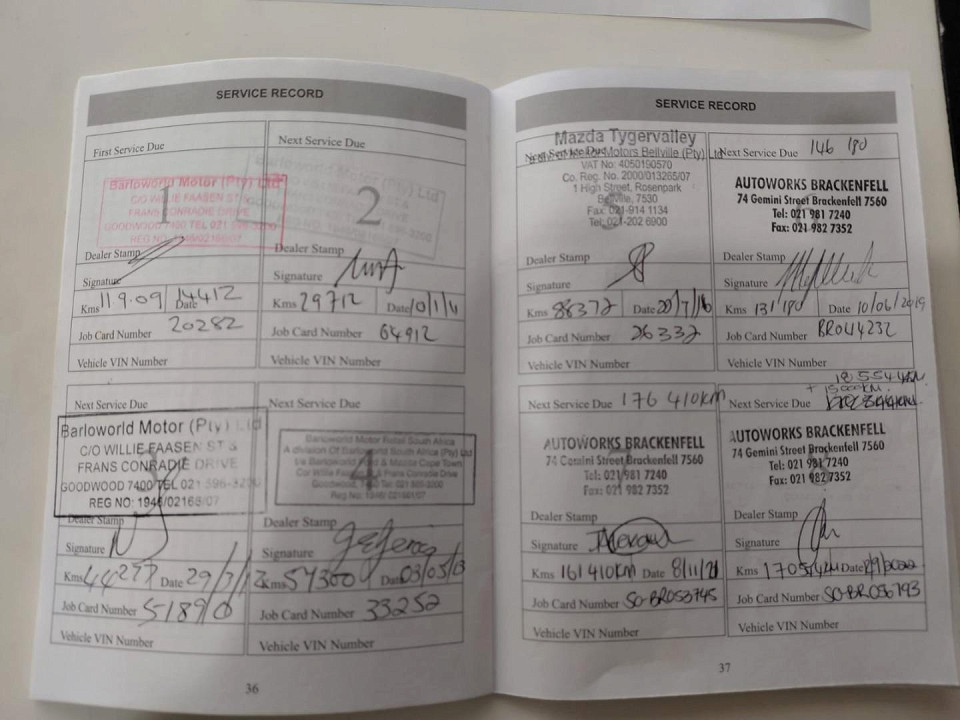 SERVICE RECORD
First Service Due
1
Barloworld Motor (Pty) Ltd
C/O WILLIE FAASEN ST &
FRANS CONRADIE DRIVE
GOODWOOD 7400 TEL 021
REG NO
Dealer Stamp
Signature
Kms 11.9.09 Date 14412
Job Card Number 20282
Vehicle VIN Number
Next Service Due
2
Dealer Stamp
Signature
Kms 29712 Date 10/1/11
Job Card Number 64912
Vehicle VIN Number
Next Service Due
Barloworld Motor (Pty) Ltd
C/O WILLIE FAASEN ST &
FRANS CONRADIE DRIVE
GOODWOOD 7400 TEL 021 596-3200
REG NO: 1946/02165/07
Dealer Stamp
Signature
Kms 44277 Date 29/3/12
Job Card Number 51890
Vehicle VIN Number
Next Service Due
4
Barloworld Motor Retail South Africa
A division Of Barloworld South Africa (Pty) Ltd
t/a Barloworld Ford & Mazda Cape Town
Cnr Willie Faasen & Frans Conradie Drive
Dealer Stamp
Signature
Kms 57300 Date 03/05/13
Job Card Number 33252
Vehicle VIN Number
36
SERVICE RECORD
Next Service Due
Mazda Tygervalley
Motors Bellville (Pty) Ltd
VAT No: 4050190570
Co. Reg. No: 2000/013265/07
1 High Street, Rosenpark
Bellville, 7530
Fax: 021-914 1134
Tel: 021-202 6900
Dealer Stamp
Signature
Kms 88372 Date 20/7/16
Job Card Number 26332
Vehicle VIN Number
Next Service Due 146 180
AUTOWORKS BRACKENFELL
74 Gemini Street Brackenfell 7560
Tel: 021 981 7240
Fax: 021 982 7352
Dealer Stamp
Signature
Kms 131 180 Date 10/06/2019
Job Card Number BR044232
Vehicle VIN Number
Next Service Due 176 410KM
AUTOWORKS BRACKENFELL
74 Gemini Street Brackenfell 7560
Tel: 021 981 7240
Fax: 021 982 7352
Dealer Stamp
Signature
Kms 161 410KM Date 8/11/21
Job Card Number SO-BR053745
Vehicle VIN Number
185544KM
+ 15000KM
Next Service Due
AUTOWORKS BRACKENFELL
74 Gemini Street Brackenfell 7560
Tel: 021 981 7240
Fax: 021 982 7352
Dealer Stamp
Signature
Kms 170544 Date /9/2022
Job Card Number SO-BR056793
Vehicle VIN Number
37